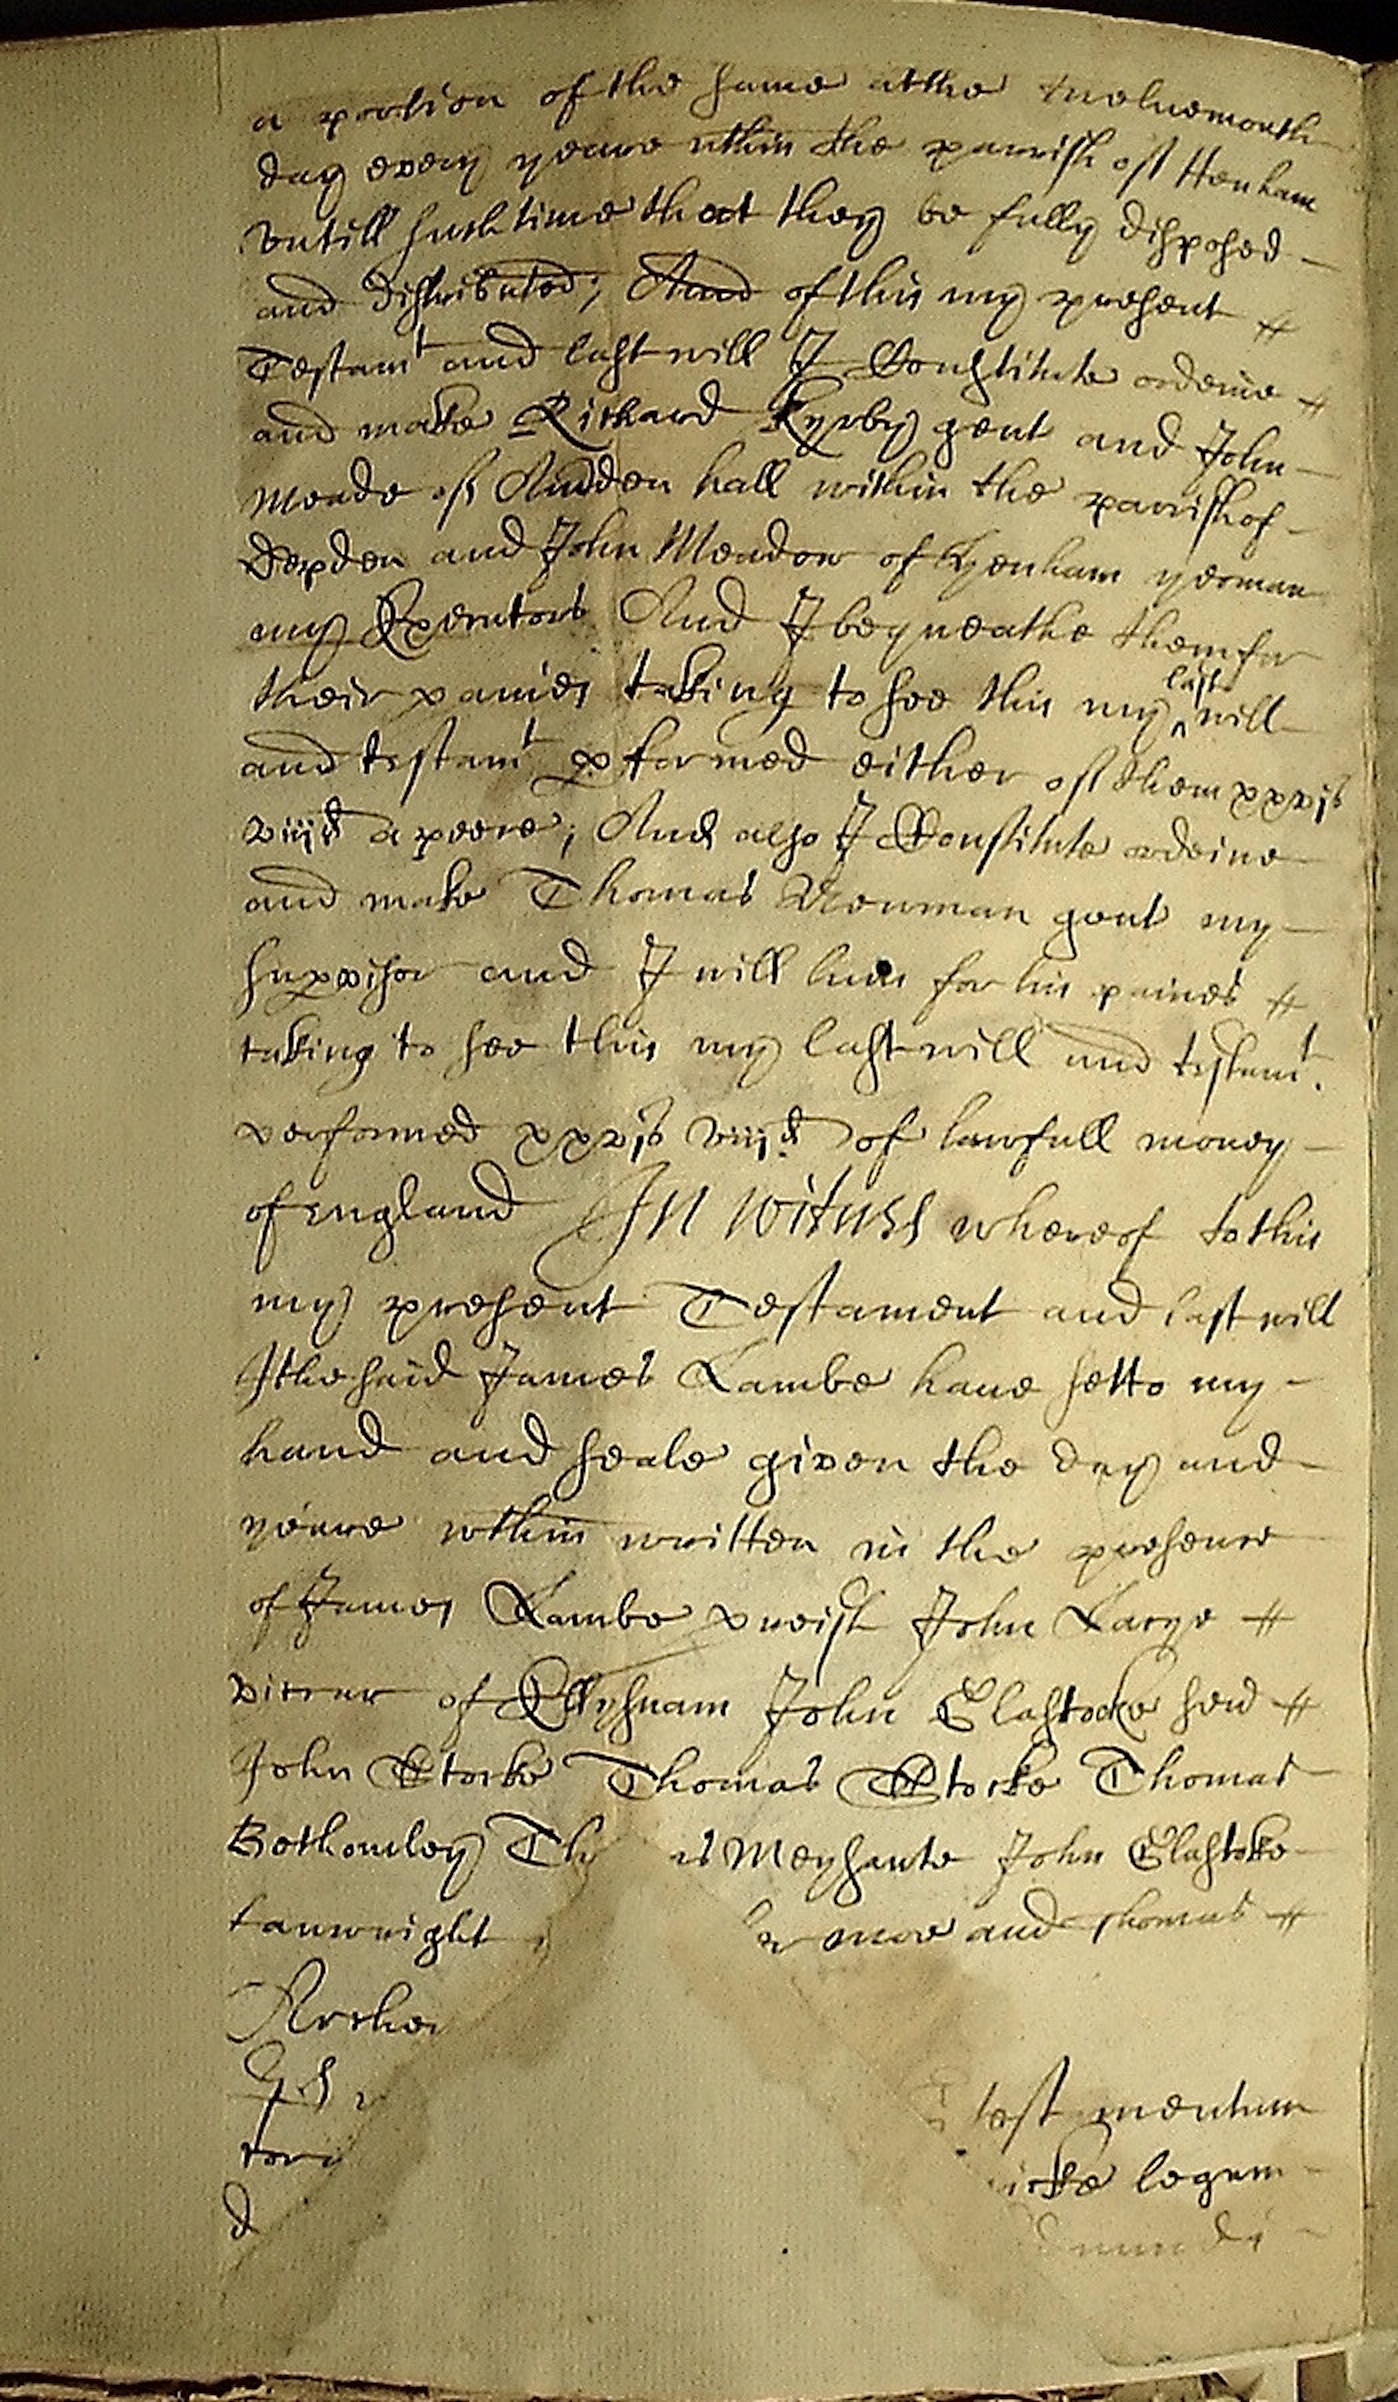 a portion of the same atthe twelvemonth
day every yeare wthin the parrish of Henham
vntill such time that they be fully disposed
and distributed; And of this my present
Testamt and last will I Constitute ordeine
and make Richard Kyrby gent and John
Meade of Amden hall within the parrish of
Depden and John Meadow of Henham yeoman
my Executors And I bequeathe them for
their paines taking to see this my last will
and testamt pformed either of them xxvjs
viijd a peece; And also I Constitute ordeine
and make Thomas Newman gent my
supvisor and I will him for his paines
taking to see this my last will and testamt.
performed xxvjs viijd of lawfull money
of England In witness whereof to this
my present Testament and last will
I the said James Lambe haue setto my
hand and seale given the day and
yeare wthin written in the presence
of James Lambe preist John Large
viccar of Ellysnam John Glastocke sen
John Stocke Thomas Stocke Thomas
Bothomley Th as Meysante John Glastoke
tanwright more and Thomas
Archer
testamentum
legum